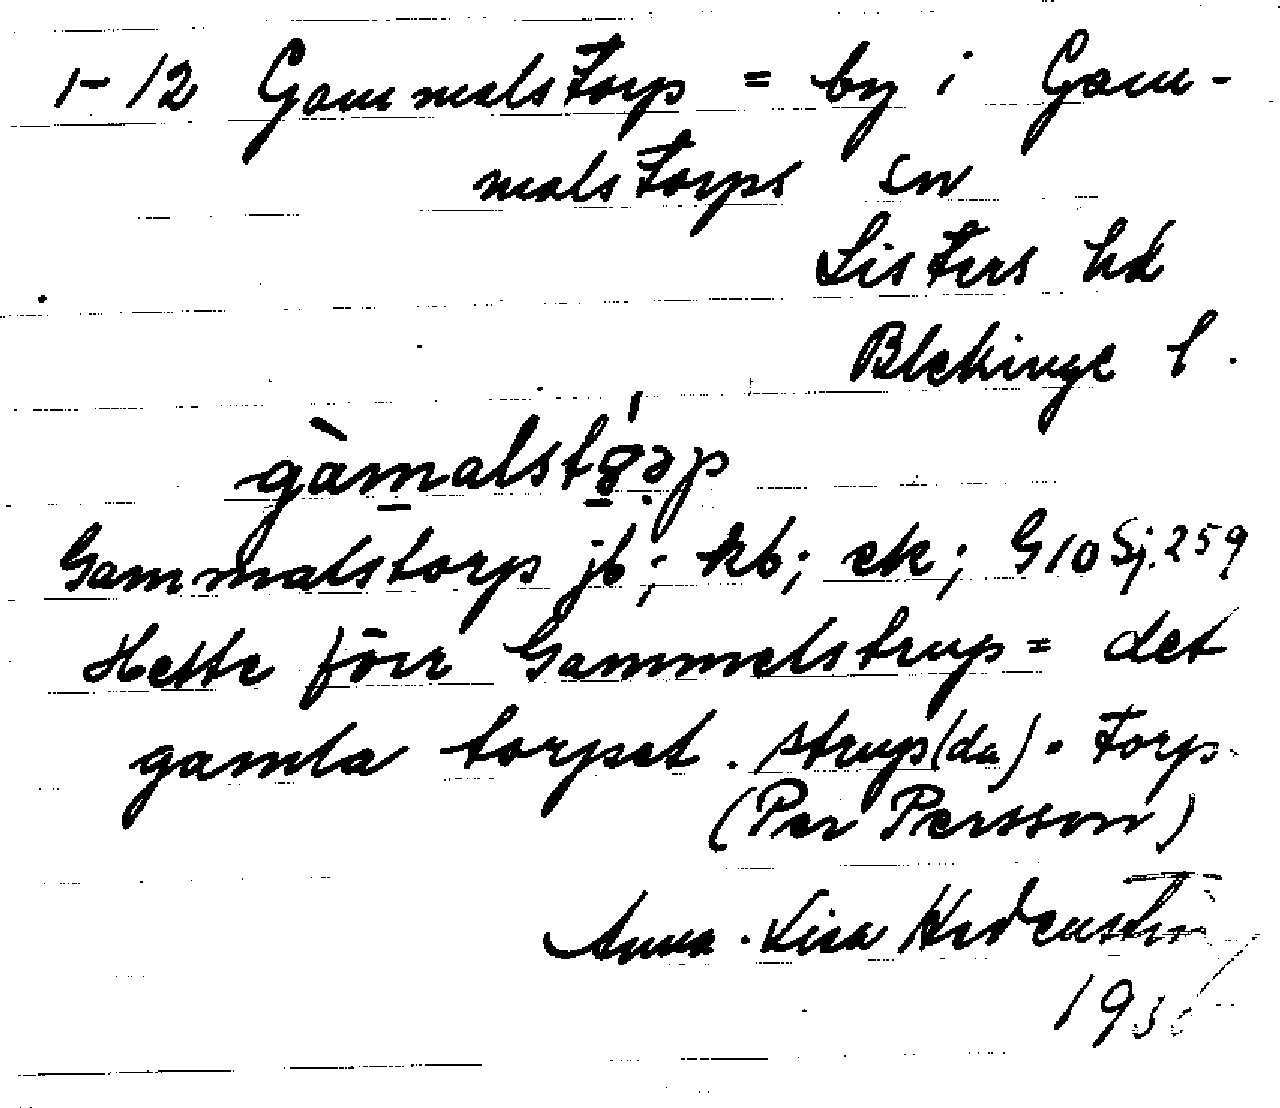 1-12 Gammalstorp = by i Gam-
malstorps sn
Listers hd
Blekinge l.
gàmalstǫrp
Gammalstorp jb; kb; ek; G10Sj.259
Hette förr Gammelstrup = det
gamla torpet. strup(da). Torp.
(Per Persson)
Anna-Lisa
193